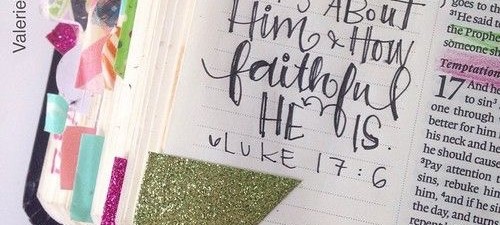 Valerie
'S ABOUT
Him & HOW
faithful
HE IS.
LUKE 17:6
goes to th
³¹He said to
the Prophe
someone sh
Temptation
17 And he
to sin³
one through
better for him
his neck and he
he should cause
³Pay attention t
sins, rebuke him
him, ⁴and if he si
the day, and turns